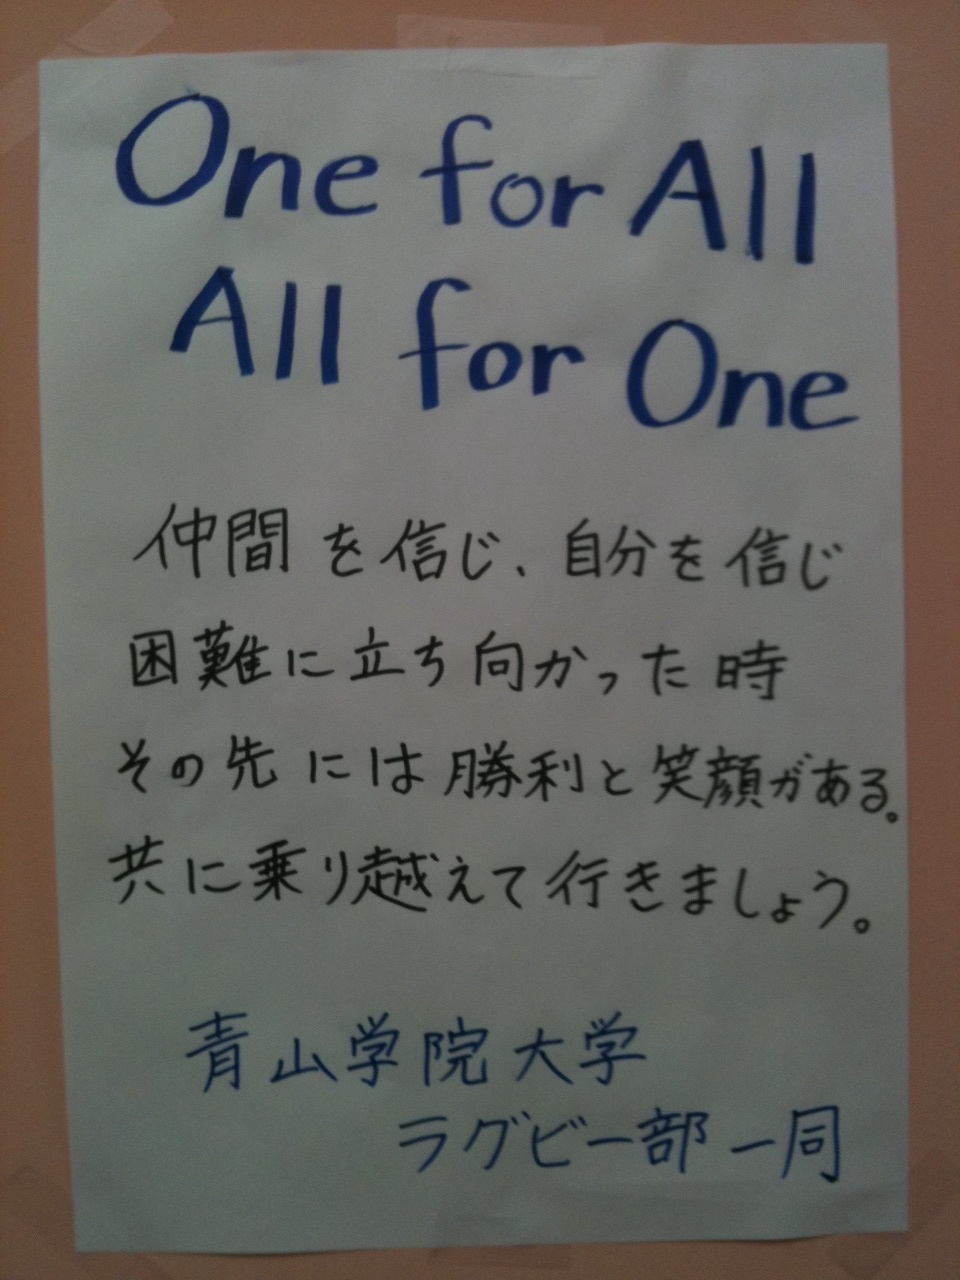 One for All
All for One
仲間を信じ、自分を信じ
困難に立ち向かった時
その先には勝利と笑顔がある。
共に乗り越えて行きましょう。
青山学院大学
ラグビー部一同